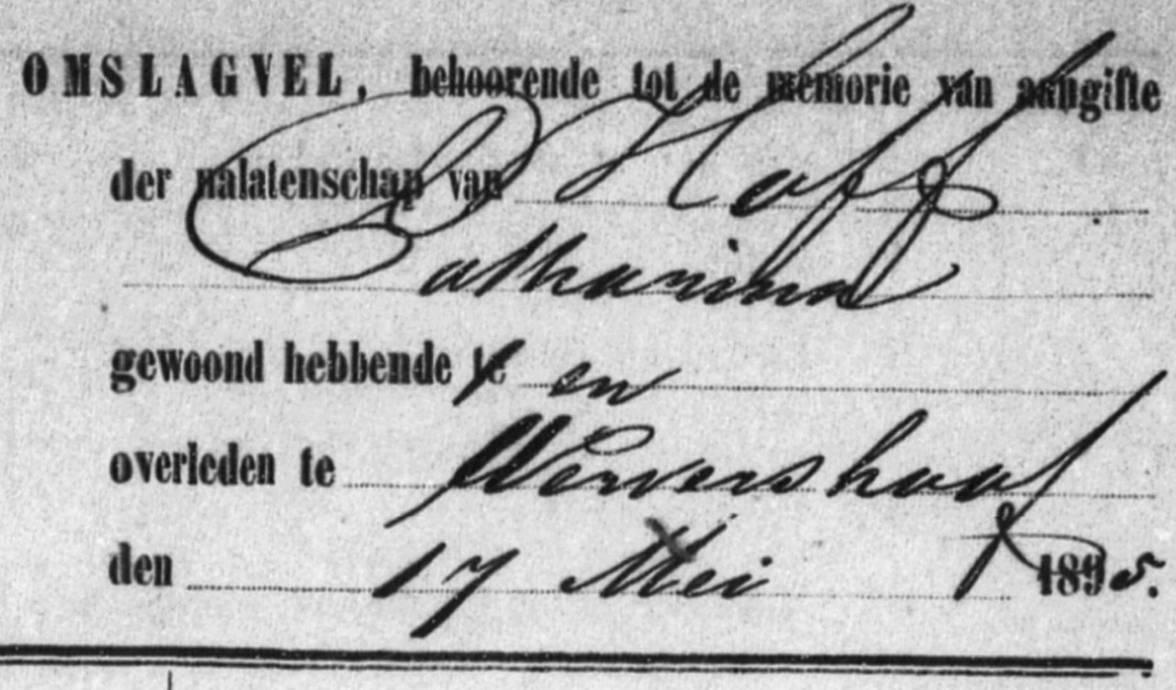 OMSLAGVEL, behoorende tot de memorie van aangifte
der nalatenschap van Haff
Catharina
gewoond hebbende te en
overleden te Wervershoof
den 17 Mei 1895.